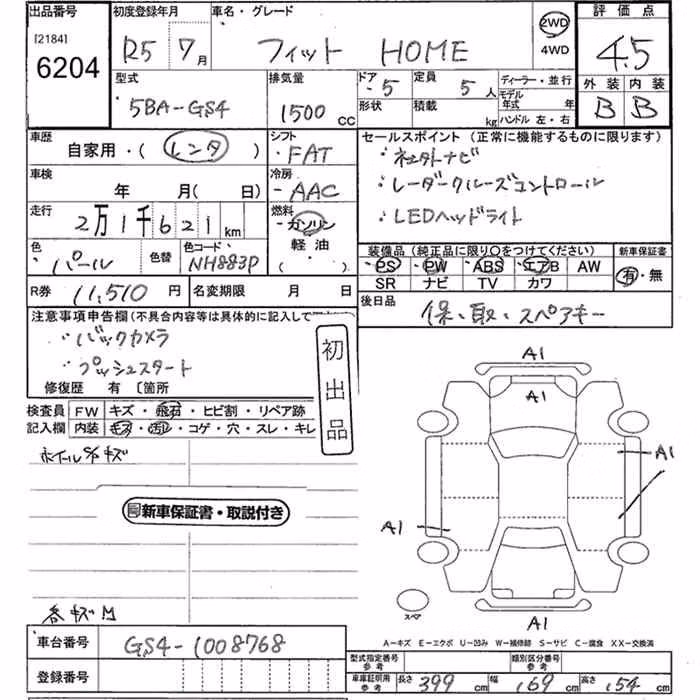 出品番号 初度登録年月 車名・グレード 評価点
[2184]
6204 R5 7月 フィット HOME 2WD 4WD 4.5
型式 排気量 ドア 定員 ディーラー・並行 外装 内装
5BA-GS4 1500 CC 5 5人 モデル年式 年 B B
形状 積載 kg ハンドル 左・右
車歴 シフト セールスポイント (正常に機能するものに限ります)
自家用・(レンタ) ・FAT ・ネットナビ
車検 冷房
年 月(日) ・AAC ・レーダークルーズコントロール
走行 燃料
2万1千621km ・ガソリン ・LEDヘッドライト
軽油
色 色替 色コード ・( ) 装備品 (純正品に限り○をつけてください) 新車保証書
・パール NH883P ・PS ・PW ・ABS ・エアB AW 有・無
SR ナビ TV カワ
R券 11,510円 名変期限 月 日 後日品
保、取、スペアキー
注意事項申告欄(不具合内容等は具体的に記入して
・バックカメラ
・プッシュスタート
修復歴 有 〔箇所
初出品
検査員 FW キズ・飛石・ヒビ割・リペア跡
記入欄 内装 キズ・汚れ・コゲ・穴・スレ・キレ
ホイルキズ
新車保証書・取説付き
各キズ
A1
A1
A1
A1
A1
スペア
A-キズ E-エクボ U-凹み W-補修跡 S-サビ C-腐食 XX-交換済
車台番号 GS4-1008768
型式指定番号 参考 類別区分番号 参考
登録番号
車庫証明用 参考 長さ 399 cm 幅 169 cm 高さ 154 cm